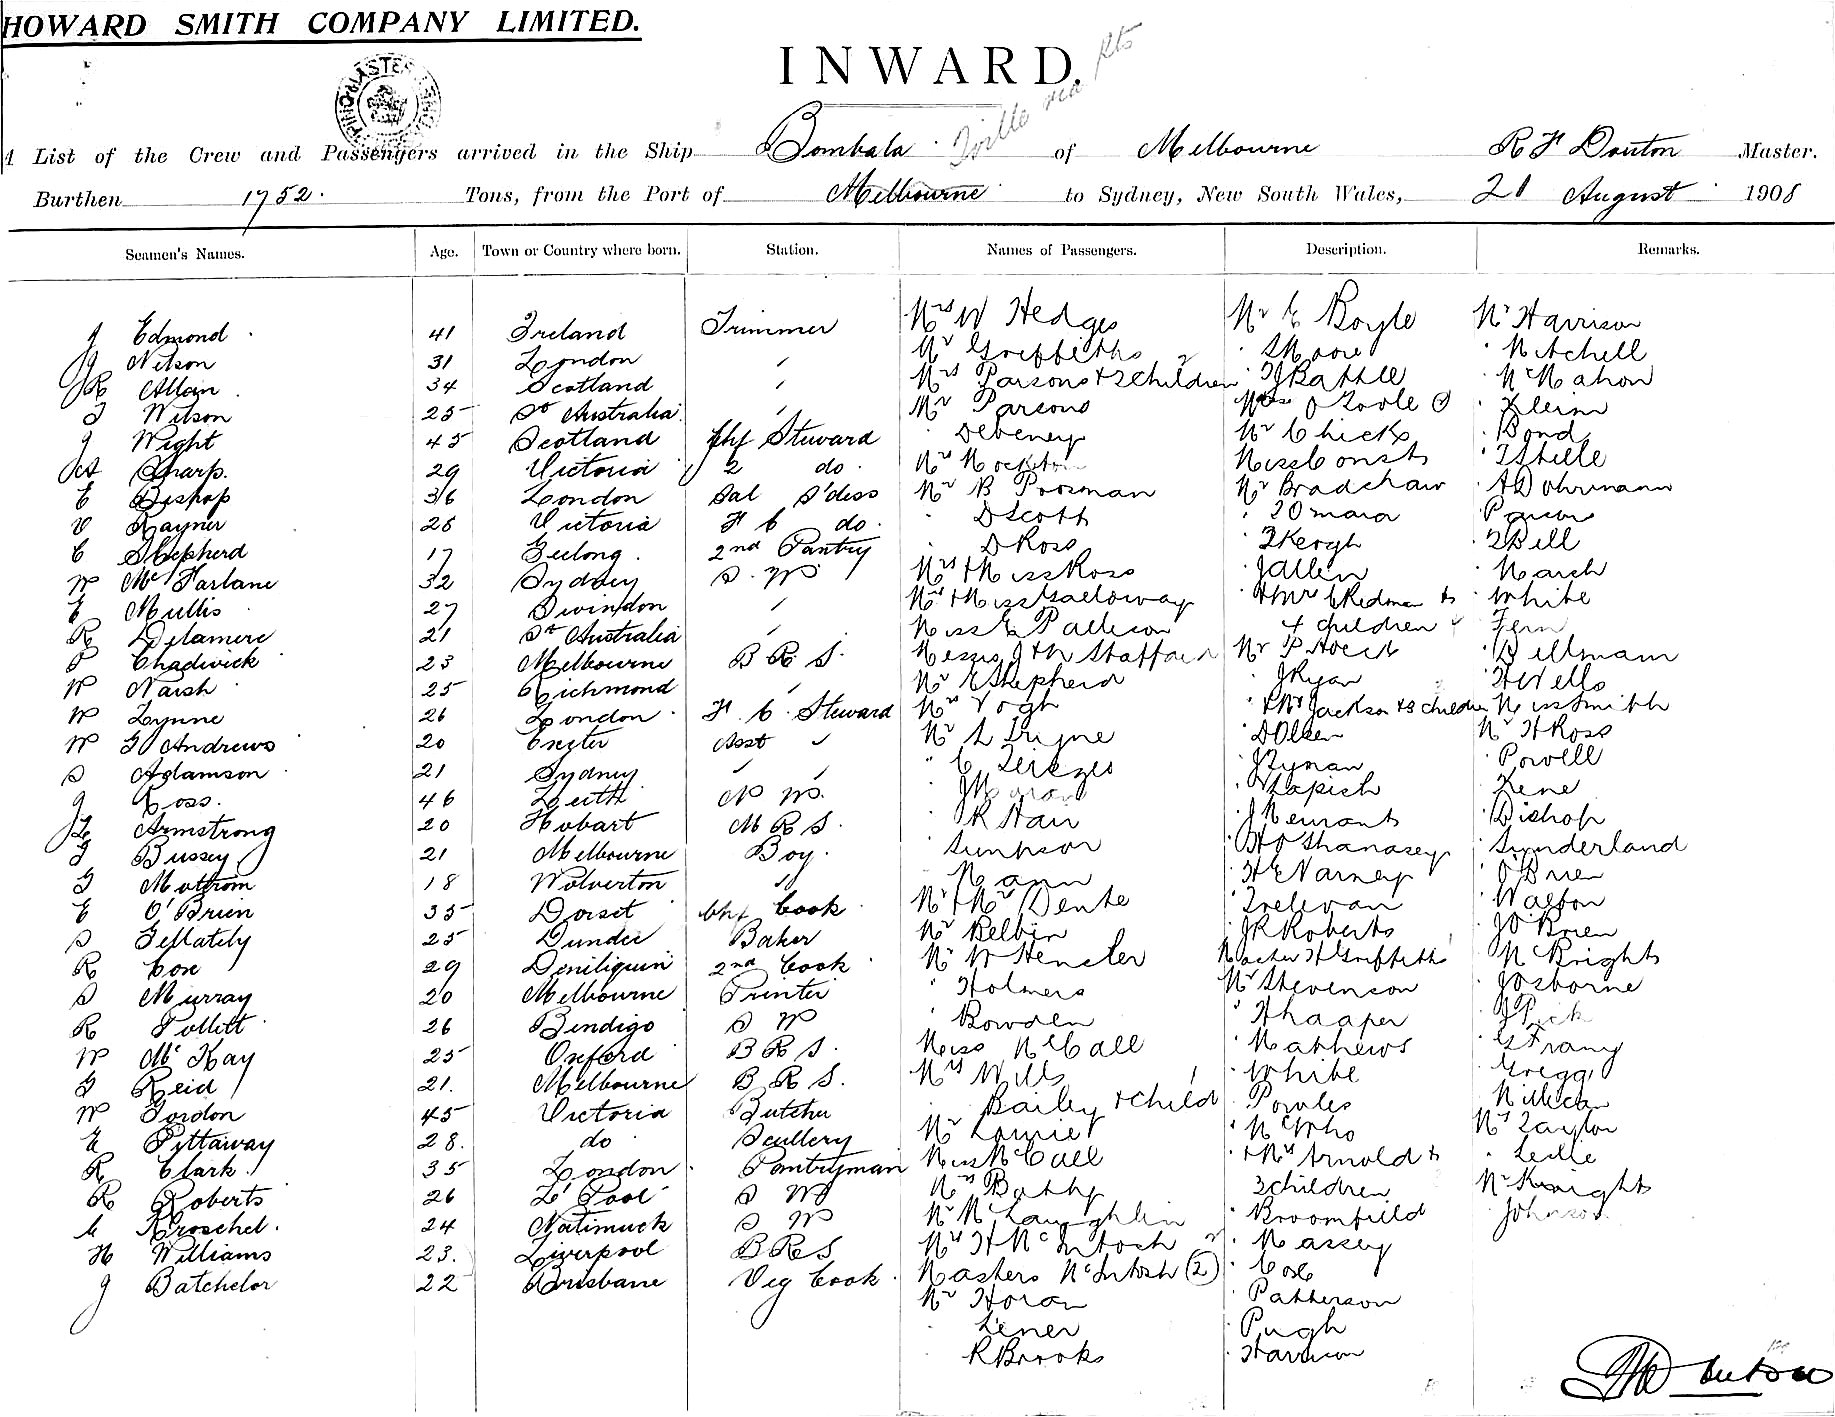 HOWARD SMITH COMPANY LIMITED.
INWARD.
List of the Crew and Passengers arrived in the Ship Bombala of Melbourne R F Douton Master.
Burthen 1752. Tons, from the Port of Melbourne to Sydney, New South Wales, 21 August 1908
Seamen's Names. Age. Town or Country where born. Station. Names of Passengers. Description. Remarks.
J Edmond 41 Ireland Trimmer Mrs W Hedges Mr E Boyle Mr Harrison
J Nelson 31 London " Mr Griffiths " Moore " Mitchell
R Allan 34 Scotland " Mrs Parsons + 3 children " J Battle " McMahon
J Wilson 25 Sth Australia " Mr Parsons O'Toole " Klein
J Wight 45 Scotland Chf Steward " Debeney Mr Chicks " Bond
A Sharp. 29 Victoria 2 do. Mrs Miss
E Bishop 36 London Sal S'dess Mr B Poosman Mr Bradshaw " A Dohrmann
V Rayner 25 Victoria F C do. " D Scott " J Omara
C Shepherd 17 Geelong. 2nd Pantry " D Ross " J Keogh " Bell
W McFarlane 32 Sydney S. W. Mrs + Miss Ross " J Allen " March
E Mullis 27 Swindon " Mrs + Miss Galloway " + Mrs C Redman + " White
R Delamere 21 Sth Australia " Miss E Pattison 4 children " Fern
P Chadwick 23 Melbourne B R S. Messrs J + W Stafford Mr P Hoeck " Dillmann
W Naish 25 Richmond " Mr E Shepherd " J Ryan " H Wells
W Lynne 26 London F. C. Steward Mrs Vogh " + Mrs Jackson + 3 children Miss Smith
W G Andrews 20 Exeter Asst " Mr L Irvine " D Olsen Mr H Ross
S Adamson 21 Sydney " " " C " J Hyman " Powell
J Ross. 46 Leith N W. " J " Lapish " Kene
L Armstrong 20 Hobart M R S. " R Hair " J Meurant " Bishop
J Bussey 21 Melbourne Boy. " Simpson " H O'Shanassy " Sunderland
G Mottrom 18 Wolverton " " Mann " H E Varney " O'Brien
E O'Brien 35 Dorset Chf Cook Mr + Mrs Dente " Trelevan " Walton
S Gellately 25 Dundee Baker Mr Belbin " J R Roberts " J O'Brien
R Cox 29 Deniliquin 2nd Cook Mr W Hensler Master H Griffiths " M Bright
S Murray 20 Melbourne Printer " Holmes Mr Stevenson " J Osborne
R Pollitt 26 Bendigo S W " Bowden " Haaper " J Pick
W McKay 25 Oxford B R S. Miss McCall " Mathews " G Frang
G Reid 21. Melbourne B R S. Mrs Wills " White " Gregg
W Gordon 45 Victoria Butcher " Bailey + Child " Powles " Milligan
E Pittaway 28. do Scullery Mr Lowrie " McWho Mrs Taylor
R Clark. 35 London Pantryman Miss McCall " + Mrs Arnold + " Leslie
R Roberts 26 L'Pool S W Mrs Bathy 3 children Mr Knight
C Kroschel. 24 Natimuck S W Mr McLaughlin " Broomfield " Johnson
H Williams 23. Liverpool B R S Mrs H McIntosh " Massey
J Batchelor 22 Brisbane Veg Cook Masters McIntosh (2) " Cox
Mr Horan " Patterson
" Lener " Pugh
" R Brooks " Harrison